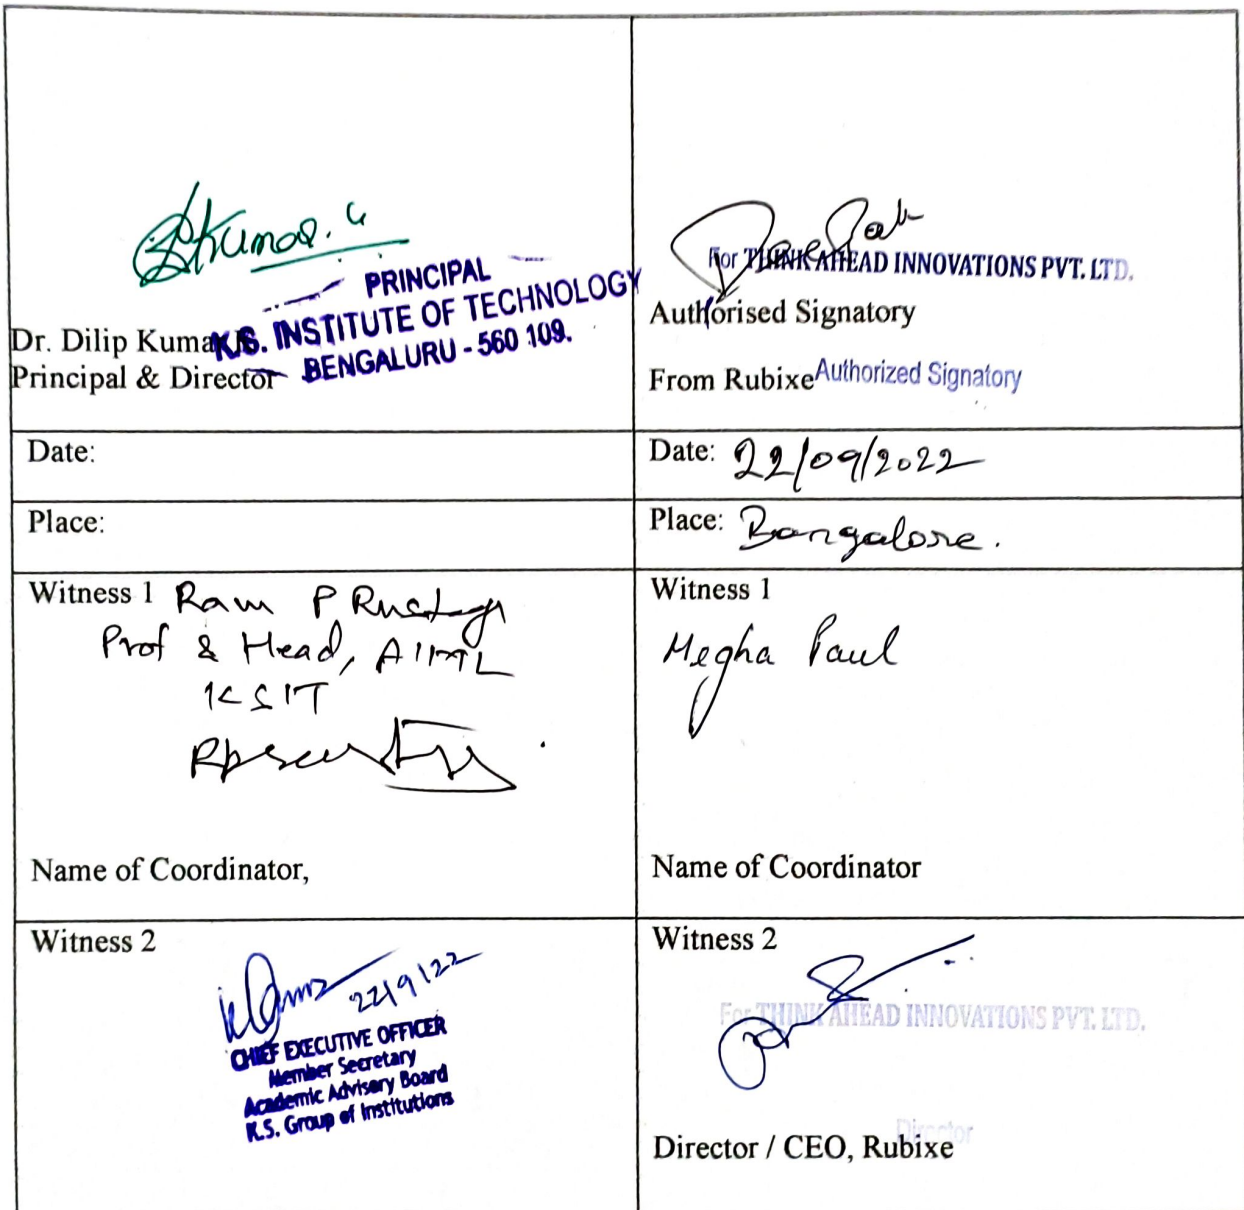 PRINCIPAL
K.S. INSTITUTE OF TECHNOLOGY
BENGALURU - 560 109.
Dr. Dilip Kumar
Principal & Director
For THINK AHEAD INNOVATIONS PVT. LTD.
Authorised Signatory
From Rubixe
Authorized Signatory
Date:
Date: 22/09/2022
Place:
Place: Bangalore.
Witness 1 Ram P Rustagi
Prof & Head, AIML
KSIT
Name of Coordinator,
Witness 1
Megha Paul
Name of Coordinator
Witness 2
22/9/22
CHIEF EXECUTIVE OFFICER
Member Secretary
Academic Advisory Board
K.S. Group of Institutions
Witness 2
For THINK AHEAD INNOVATIONS PVT. LTD.
Director
Director / CEO, Rubixe